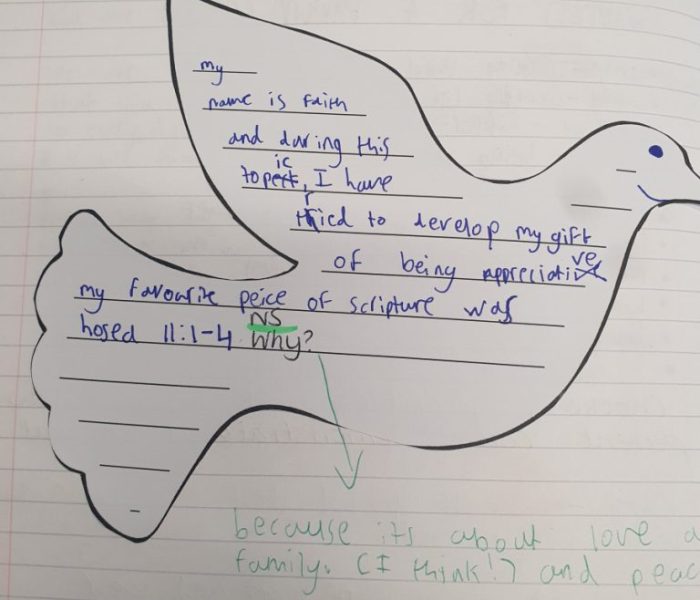 my
name is Faith
and during this
topic, I have
tried to develop my gift
of being appreciative
my favourite peice of scripture was
NS
hosed 11:1-4 Why?
because its about love a
family. (I think!) and peac